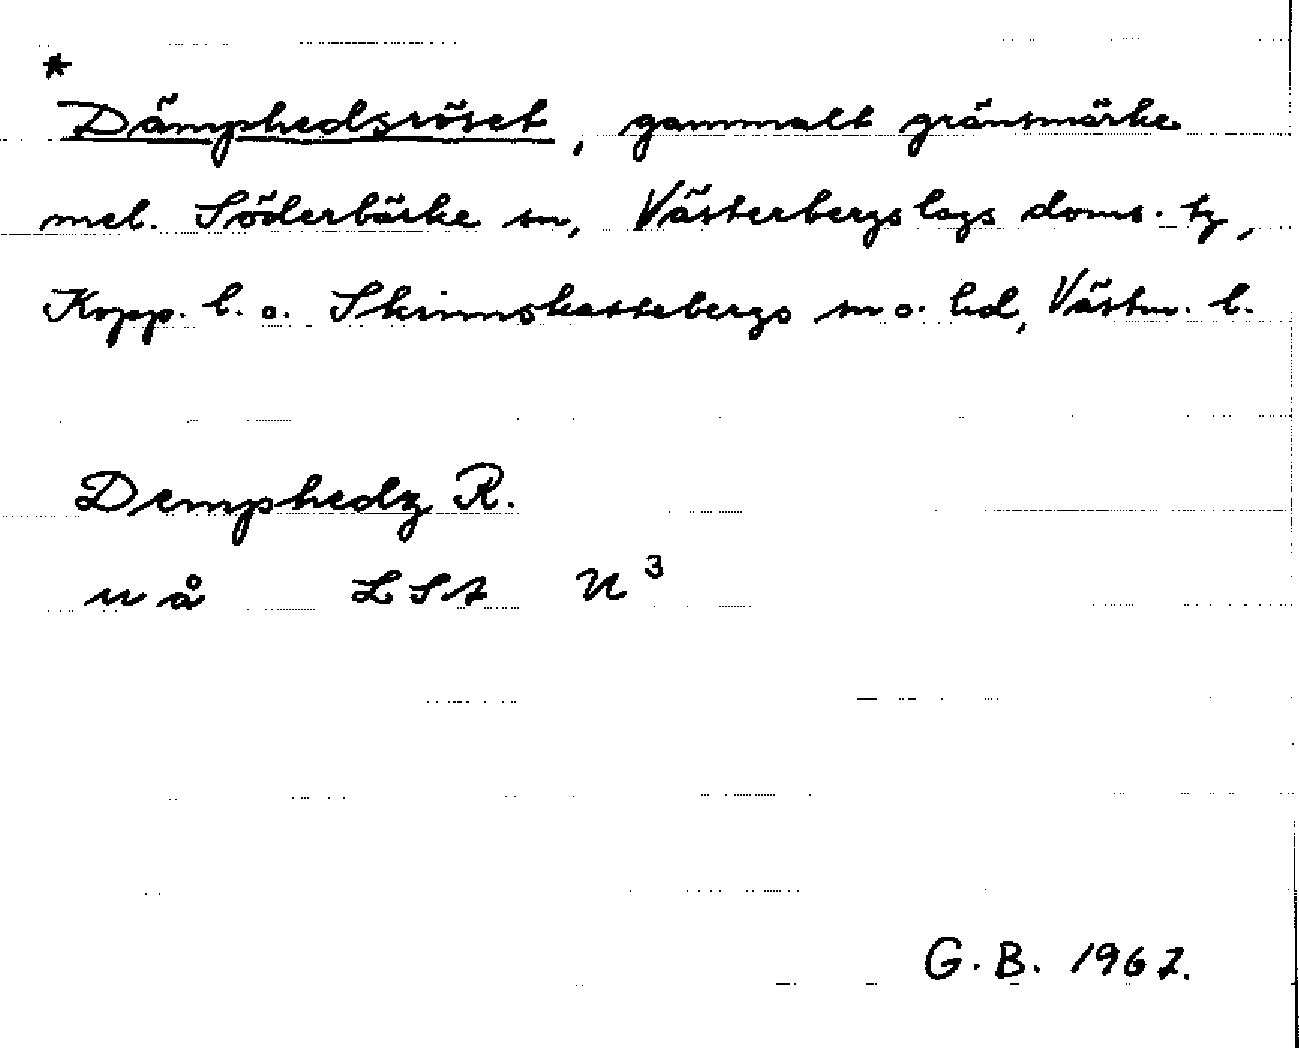 *
Dämphedsröset, gammalt gränsmärke
mel. Söderbärke sn, Västerbergslags doms. tg,
Kopp. l. o. Skinnskattebergs sn o. hd, Västm. l.
Demphedz R.
u å LSt U³
G.B. 1962.